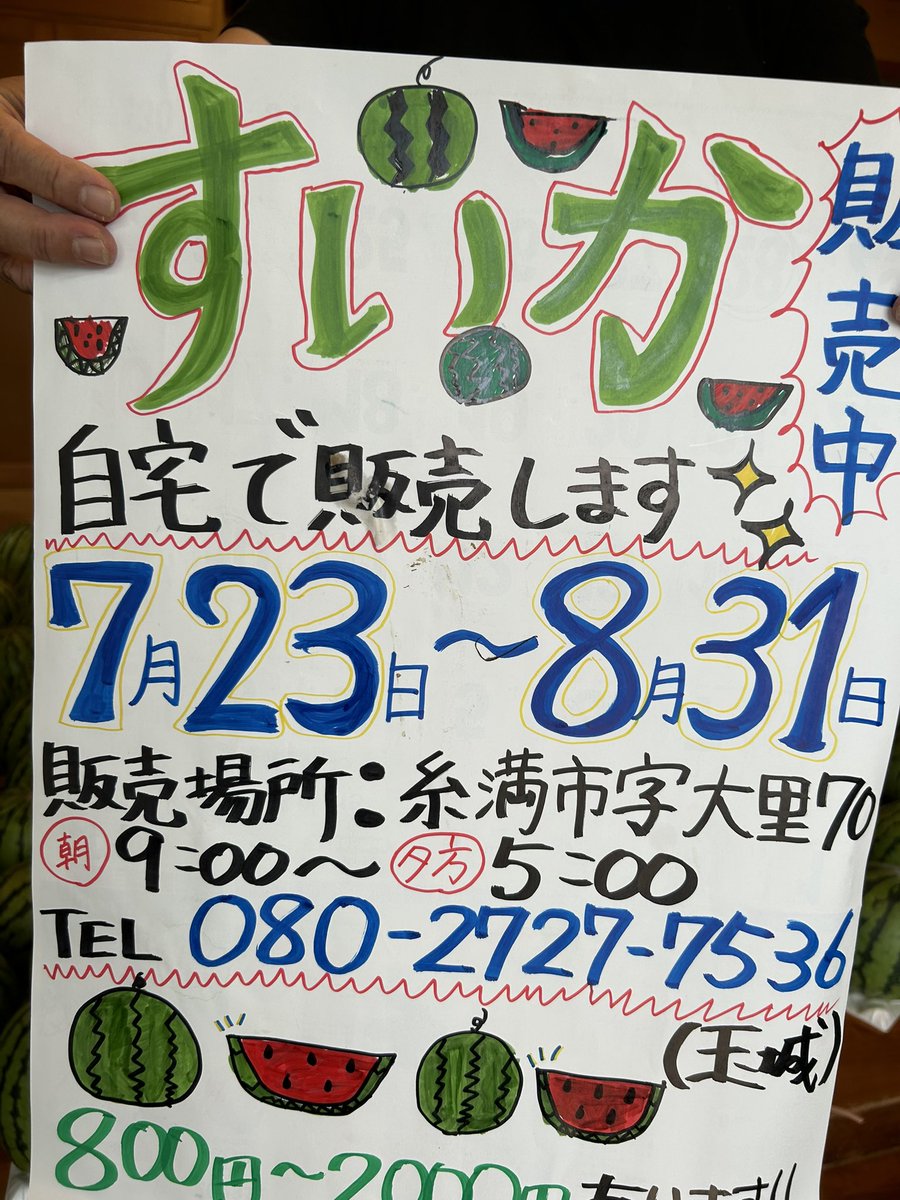 すいか
販売中
自宅で販売します
7月23日〜8月31日
販売場所：糸満市字大里70
朝 9:00〜 夕方 5:00
TEL 080-2727-7536
(玉城)
800円〜2000円